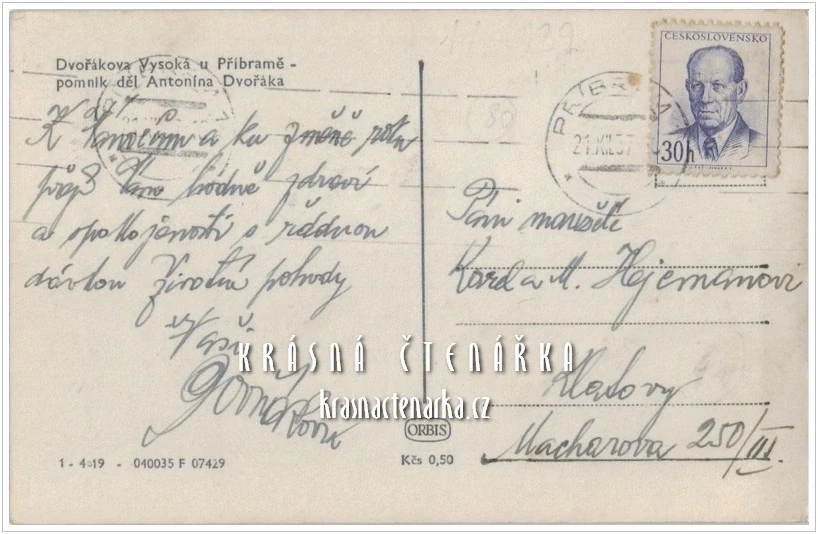 Dvořákova Vysoká u Příbramě -
pomník děl Antonína Dvořáka
K Vánocům a ku změně roku
přeji Vám hodně zdraví
a spokojenosti s řádnou
dávkou životní pohody
Vaši
ČESKOSLOVENSKO
30h
PŘÍBRAM
21.XII.57
Paní manželé
Karel a M. Hejemanovi
Klatovy
Macharova 250/III.
KRÁSNÁ ČTENÁŘKA
krasnactenarka.cz
ORBIS
1 - 4819 - 040035 F 07429
Kčs 0,50